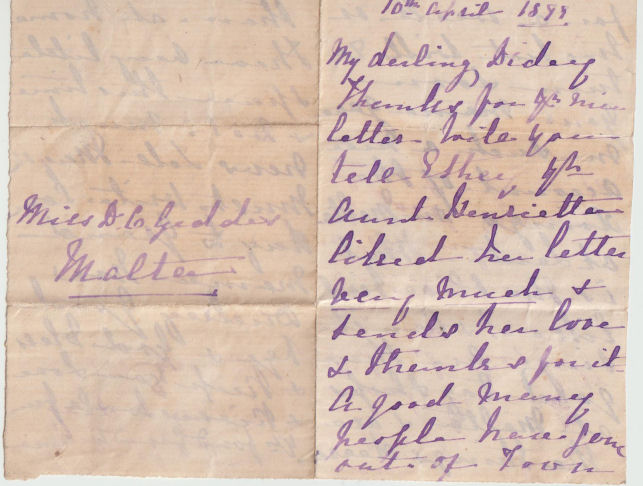 Miss D C Geddes
Malta
10th April 1899
My darling Didey
Thanks for yr nice
letter. Will you
tell Ethey yr
Aunt Henrietta
liked her letter
very much &
sends her love
& thanks for it
A good many
people have gone
out of Town